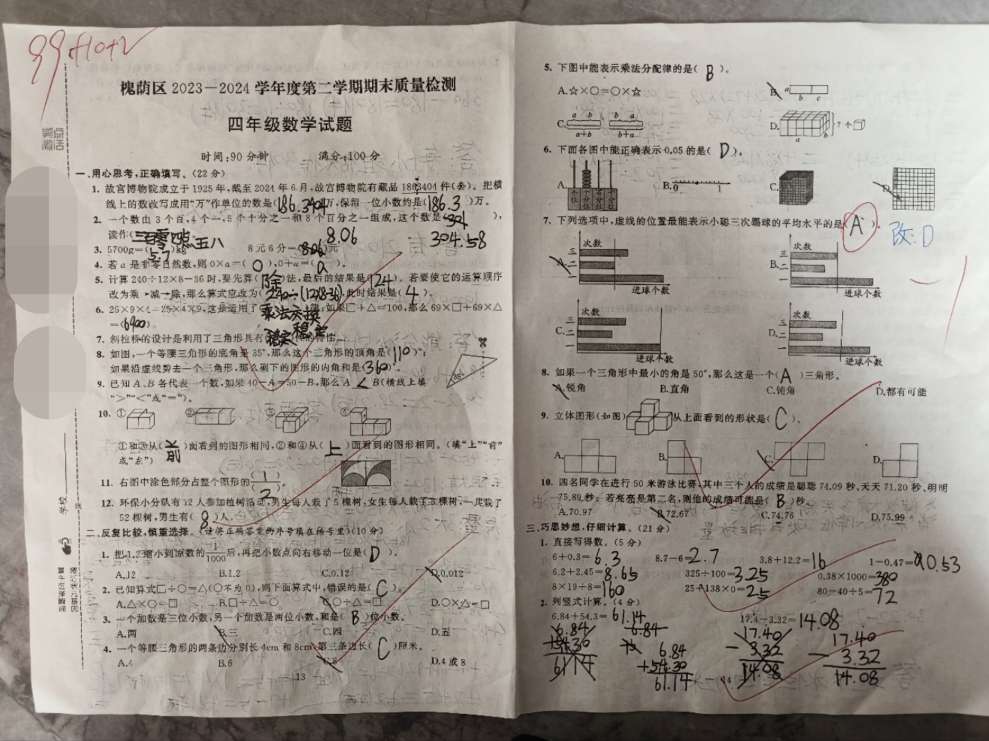 99+10+2
槐荫区 2023—2024 学年度第二学期期末质量检测
四年级数学试题
时间:90 分钟 满分:100 分
一、用心思考,正确填写。(22 分)
1. 故宫博物院成立于 1925 年,截至 2024 年 6 月,故宫博物院有藏品 1863404 件(套)。把横
线上的数改写成用“万”作单位的数是(186.3404)万,保留一位小数约是(186.3)万。
2. 一个数由 3 个百、4 个一、5 个十分之一和 8 个百分之一组成,这个数是( 304.58 ),
读作( 三百零四点五八
3. 5700g=(5.7)kg 8 元 6 分=(8.06)元
4. 若 a 是非零自然数,则 0×a=(0),0+a=(a)。
5. 计算 240÷12×8-36 时,要先算(除)法,最后的结果是(124)。若要使它的运算顺序
改为乘→减→除,那么算式应改为(240÷(12×8-36),此时结果是(4)。
6. 25×9×4=25×4×9,这是运用了 乘法交换 ;如果□+△=100,那么 69×□+69×△
=(6900)。
7. 斜拉桥的设计是利用了三角形具有 稳定
8. 如图,一个等腰三角形的底角是 35°,那么这个三角形的顶角是(110)°;
如果沿虚线剪去一个三角形,那么剩下的图形的内角和是(360)°。
9. 已知 A、B 各代表一个数,如果 40-A=50-B,那么 A < B(横线上填
“>”“<”或“=”)。
10. ① ② ③ ④
①和③从(前)面看到的图形相同,②和④从(上)面看到的图形相同。(填“上”“前”
或“左”)
11. 右图中涂色部分占整个图形的(1/2)。
12. 环保小分队有 12 人参加植树活动,男生每人栽了 5 棵树,女生每人栽了 3 棵树,一共栽了
52 棵树,男生有(8)人。
二、反复比较,慎重选择。(选择正确答案的序号填在括号里)(10 分)
1. 把 1.2 缩小到原数的 1/1000 后,再把小数点向右移动一位是(D)。
A.12 B.1.2 C.0.12 D.0.012
2. 已知算式□÷○=△(○不为 0),则下面算式中,错误的是(C)。
A.△×○=□ B.□÷△=○ C.○÷△=□ D.○×△=□
3. 一个加数是三位小数,另一个加数是两位小数,和是(B)位小数。
A.两 B.三 C.四 D.五
4. 一个等腰三角形的两条边分别长 4cm 和 8cm,第三条边长(C)厘米。
A.4 B.6 C.8 D.4 或 8
13
5. 下图中能表示乘法分配律的是(B)。
A.☆×○=○×☆ B. a b c
C. a b b a a+b b+a D. a ? 个
6. 下面各图中能正确表示 0.05 的是(D)。
A. B. 0 1 C. D.
7. 下列选项中,虚线的位置最能表示小聪三次踢球的平均水平的是(A)。 改:D
A. 次数 三 二 一 进球个数 B. 次数 三 二 一 进球个数
C. 次数 三 二 一 进球个数 D. 次数 三 二 一 进球个数
8. 如果一个三角形中最小的角是 50°,那么这是一个(A)三角形。
A.锐角 B.直角 C.钝角 D.都有可能
9. 立体图形(如图) 从上面看到的形状是(C)。
A. B. C. D.
10. 四名同学在进行 50 米游泳比赛,其中三个人的成绩是聪聪 74.09 秒,天天 71.20 秒,明明
75.89 秒。若亮亮是第二名,则他的成绩可能是(B)秒。
A.70.97 B.72.67 C.74.76 D.75.99
三、巧思妙想,仔细计算。(21 分)
1. 直接写得数。(5 分)
6+0.3=6.3 8.7-6=2.7 3.8+12.2=16 1-0.47=0.53
6.2+2.45=8.65 325÷100=3.25 0.38×1000=380
8×19÷8= 25+138×0=25 80-40÷5=72
2. 列竖式计算。(4 分)
6.84+54.3=61.14 17.4-3.32=14.08
6.84 17.40 17.40
6.84 - 3.32 - 3.32
+54.30 14.08 14.08
61.14
14